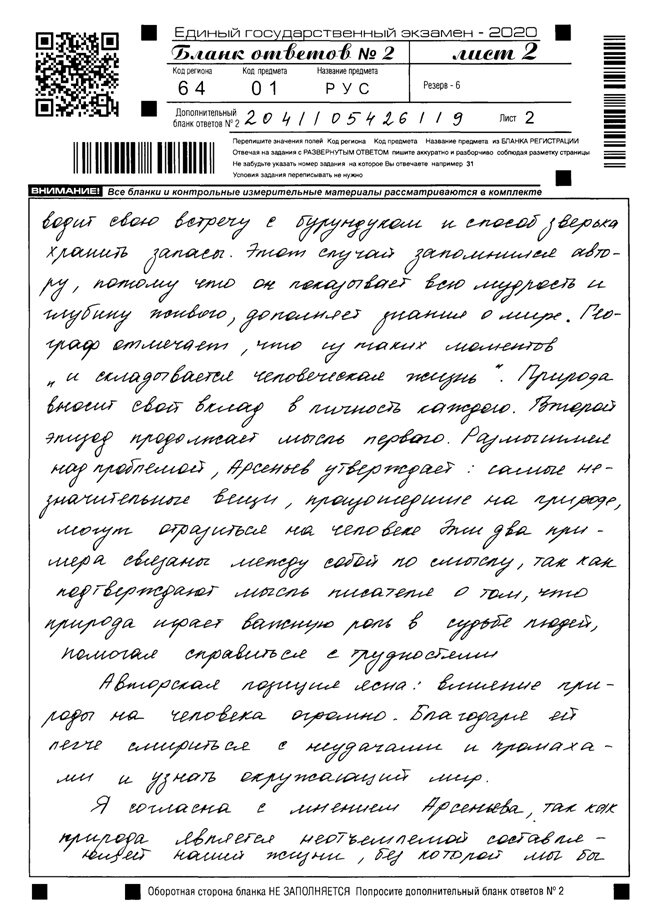 Единый государственный экзамен - 2020
Бланк ответов № 2 лист 2
Код региона Код предмета Название предмета
64 01 РУС Резерв - 6
Дополнительный
бланк ответов № 2 2041105426119 Лист 2
Перепишите значения полей Код региона Код предмета Название предмета из БЛАНКА РЕГИСТРАЦИИ
Отвечая на задания с РАЗВЕРНУТЫМ ОТВЕТОМ пишите аккуратно и разборчиво соблюдая разметку страницы
Не забудьте указать номер задания на которое Вы отвечаете например 31
Условия задания переписывать не нужно
ВНИМАНИЕ! Все бланки и контрольные измерительные материалы рассматриваются в комплекте
водит свою встречу с бурундуком и способ зверька
хранить запасы. Этот случай запомнился авто-
ру, потому что он показывает всю мудрость и
глубину живого, дополняет знания о мире. Гео-
граф отмечает, что из таких моментов
„и складывается человеческая жизнь“. Природа
вносит свой вклад в личность каждого. Второй
эпизод продолжает мысль первого. Размышляя
над проблемой, Арсеньев утверждает: самые не-
значительные вещи, произошедшие на природе,
могут отразиться на человеке Эти два при-
мера связаны между собой по смыслу, так как
подтверждают мысль писателя о том, что
природа играет важную роль в судьбе людей,
помогая справиться с трудностями
Авторская позиция ясна: влияние при-
роды на человека огромно. Благодаря ей
легче смириться с неудачами и промаха-
ми и узнать окружающий мир.
Я согласна с мнением Арсеньева, так как
природа является неотъемлемой составля-
ющей нашей жизни, без которой мы бы
Оборотная сторона бланка НЕ ЗАПОЛНЯЕТСЯ Попросите дополнительный бланк ответов № 2